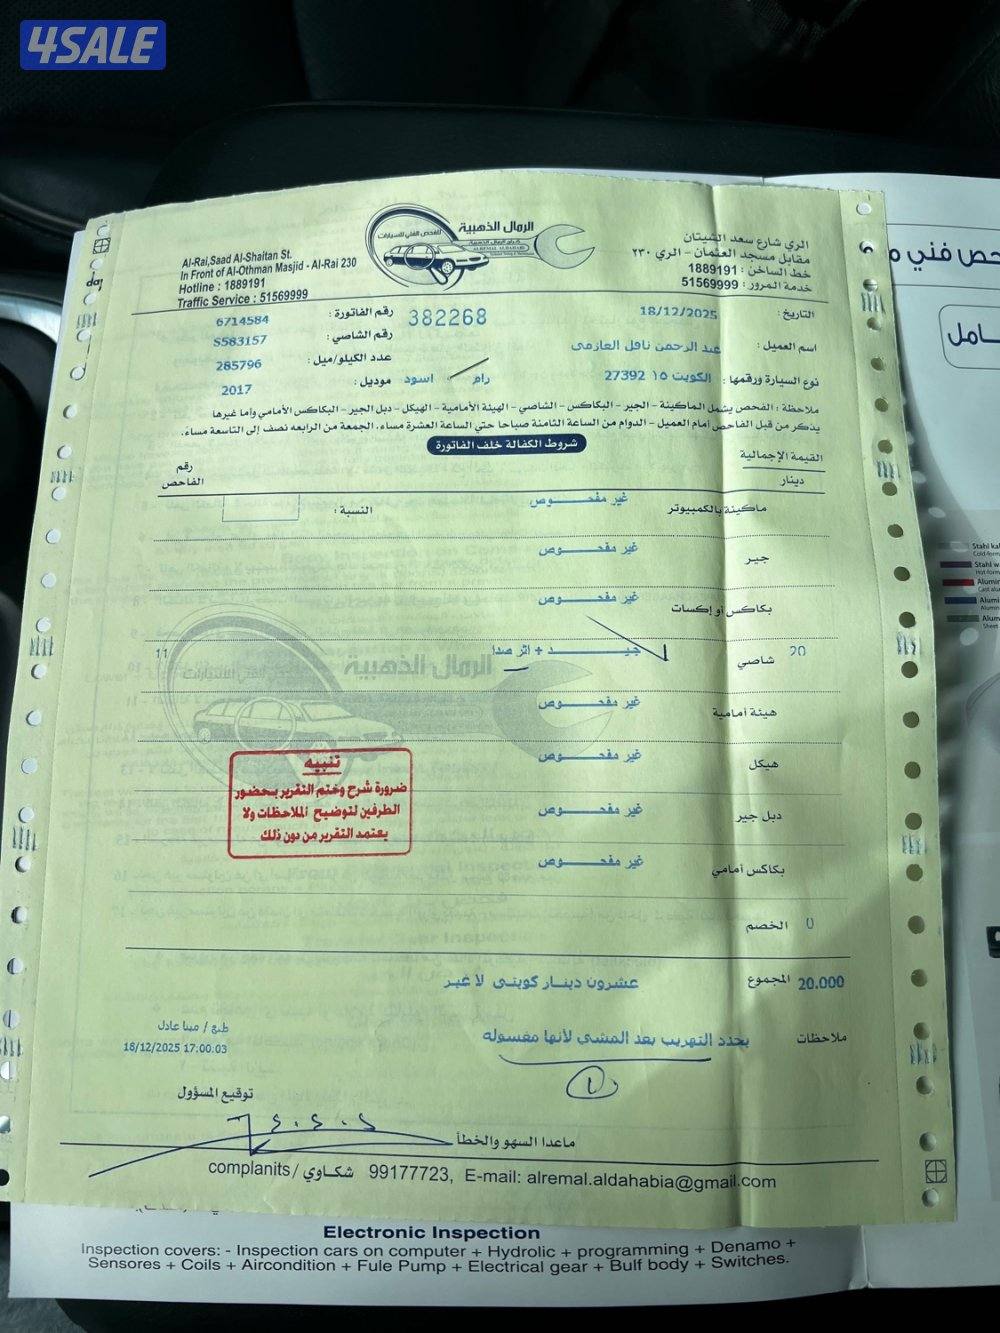 4SALE
الرمال الذهبية
للفحص الفني للسيارات
كراج الرمال الذهبية
ALREMAL ALDAHABI
Al-Rai,Saad Al-Shaitan St.
In Front of Al-Othman Masjid - Al-Rai 230
Hotline : 1889191
Traffic Service : 51569999
الري شارع سعد الشيتان
مقابل مسجد العثمان - الري ٢٣٠
خط الساخن : 1889191
خدمة المرور : 51569999
التاريخ : 18/12/2025
382268
رقم الفاتورة : 6714584
اسم العميل : عبد الرحمن نافل العازمى
رقم الشاصي : S583157
عدد الكيلو/ميل : 285796
نوع السيارة ورقمها : الكويت ١٥ 27392 رام اسود
موديل : 2017
ملاحظة : الفحص يشمل الماكينة - الجير - البكاكس - الشاصي - الهيئة الأمامية - الهيكل - دبل الجير - البكاكس الأمامي واما غيرها
يذكر من قبل الفاحص أمام العميل - الدوام من الساعة الثامنة صباحا حتي الساعة العشرة مساء. الجمعة من الرابعه نصف إلى التاسعة مساء.
شروط الكفالة خلف الفاتورة
القيمة الإجمالية
دينار
رقم
الفاحص
ماكينة بالكمبيوتر غير مفحـــوص النسبة :
جير غير مفحـــوص
بكاكس أو إكسات غير مفحـــوص
20 شاصي جيـــد + اثر صدا 11
هيئة أمامية غير مفحـــوص
هيكل غير مفحـــوص
دبل جير غير مفحـــوص
بكاكس أمامي غير مفحـــوص
الرمال الذهبية
تنبيه
ضرورة شرح وختم التقرير بحضور
الطرفين لتوضيح الملاحظات ولا
يعتمد التقرير من دون ذلك
0 الخصم
20.000 المجموع عشرون دينار كويتى لا غير
ملاحظات يحدد التهريب بعد المشي لأنها مغسوله
1
طبع / مينا عادل
18/12/2025 17:00.03
توقيع المسؤول
ماعدا السهو والخطأ
complanits/ شكاوي 99177723, E-mail: alremal.aldahabia@gmail.com
Electronic Inspection
Inspection covers: - Inspection cars on computer + Hydrolic + programming + Denamo +
Sensores + Coils + Aircondition + Fule Pump + Electrical gear + Bulf body + Switches.
حص فني
امل
Stahl
Aluminium